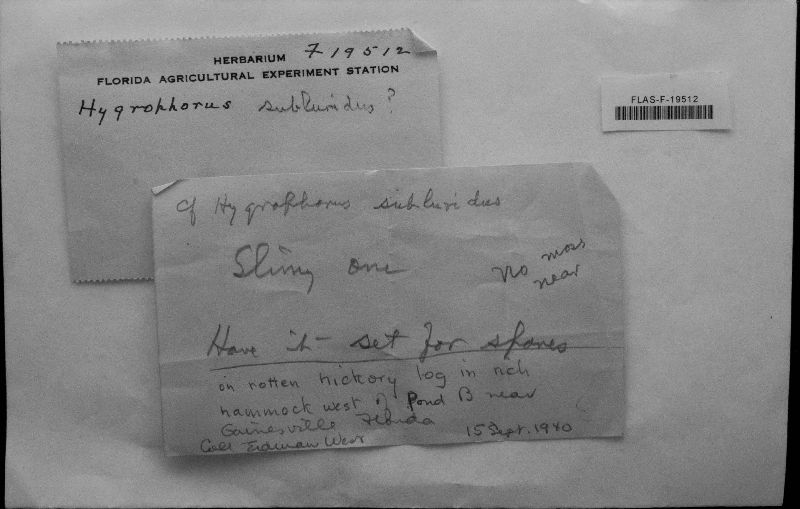 HERBARIUM F 19512
FLORIDA AGRICULTURAL EXPERIMENT STATION
Hygrophorus subluridus?
FLAS-F-19512
cf Hygrophorus subluridus
Slimy one
No moss
near
Have it set for spores
on rotten hickory log in rich
hammock west of Pond B near
Gainesville Florida
15 Sept. 1940
Coll Erdman West